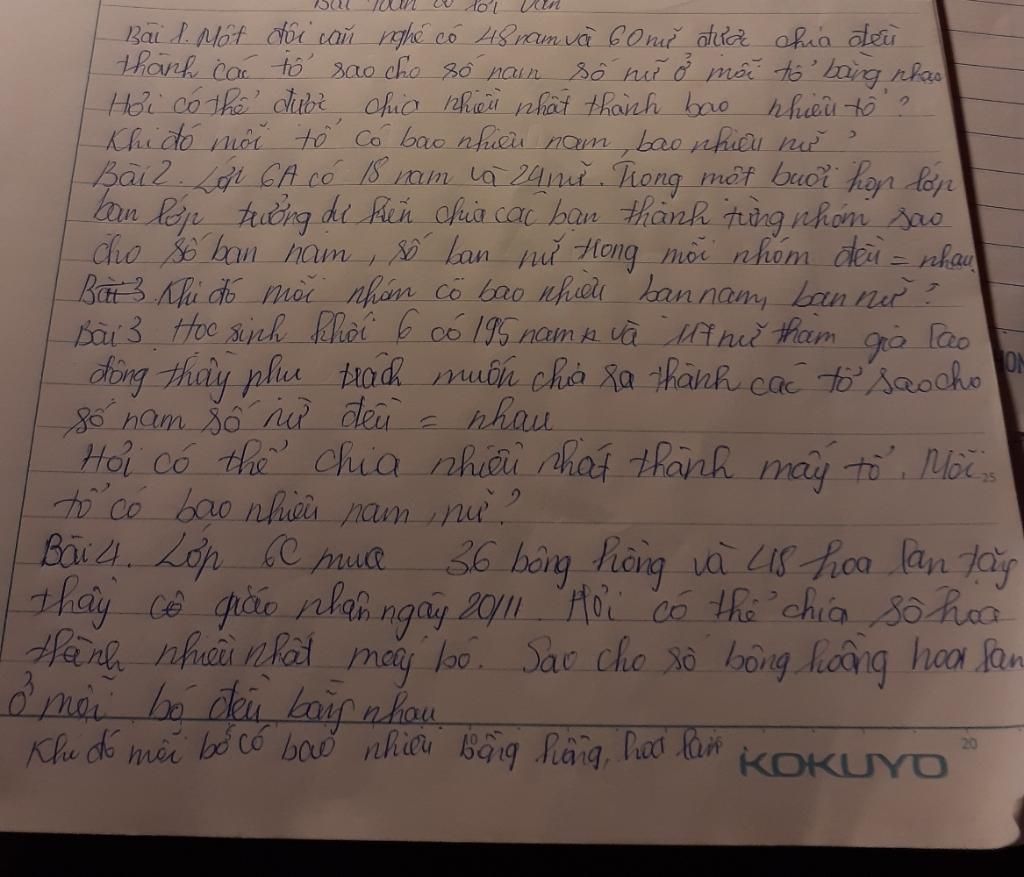 Bài toán có lời văn
Bài 1. Một đội văn nghệ có 48 nam và 60 nữ được chia đều
thành các tổ sao cho số nam số nữ ở mỗi tổ bằng nhau
Hỏi có thể được chia nhiều nhất thành bao nhiêu tổ?
Khi đó mỗi tổ có bao nhiêu nam, bao nhiêu nữ?
Bài 2. Lớp 6A có 18 nam và 24 nữ. Trong một buổi họp lớp
ban lớp trưởng dự kiến chia các bạn thành từng nhóm sao
cho số bạn nam, số bạn nữ trong mỗi nhóm đều = nhau.
Bài 3 Khi đó mỗi nhóm có bao nhiêu bạn nam, bạn nữ?
Bài 3. Học sinh khối 6 có 195 nam và 117 nữ tham gia lao
động thầy phụ trách muốn chia ra thành các tổ sao cho
số nam số nữ đều = nhau
Hỏi có thể chia nhiều nhất thành mấy tổ. Mỗi
25
tổ có bao nhiêu nam, nữ?
Bài 4. Lớp 6C mua 36 bông hồng và 48 hoa lan tặng
thầy cô giáo nhân ngày 20/11. Hỏi có thể chia số hoa
thành nhiều nhất mấy bó. Sao cho số bông hồng hoa lan
ở mỗi bó đều bằng nhau
Khi đó mỗi bó có bao nhiêu bông hồng, hoa lan
20
KOKUYO